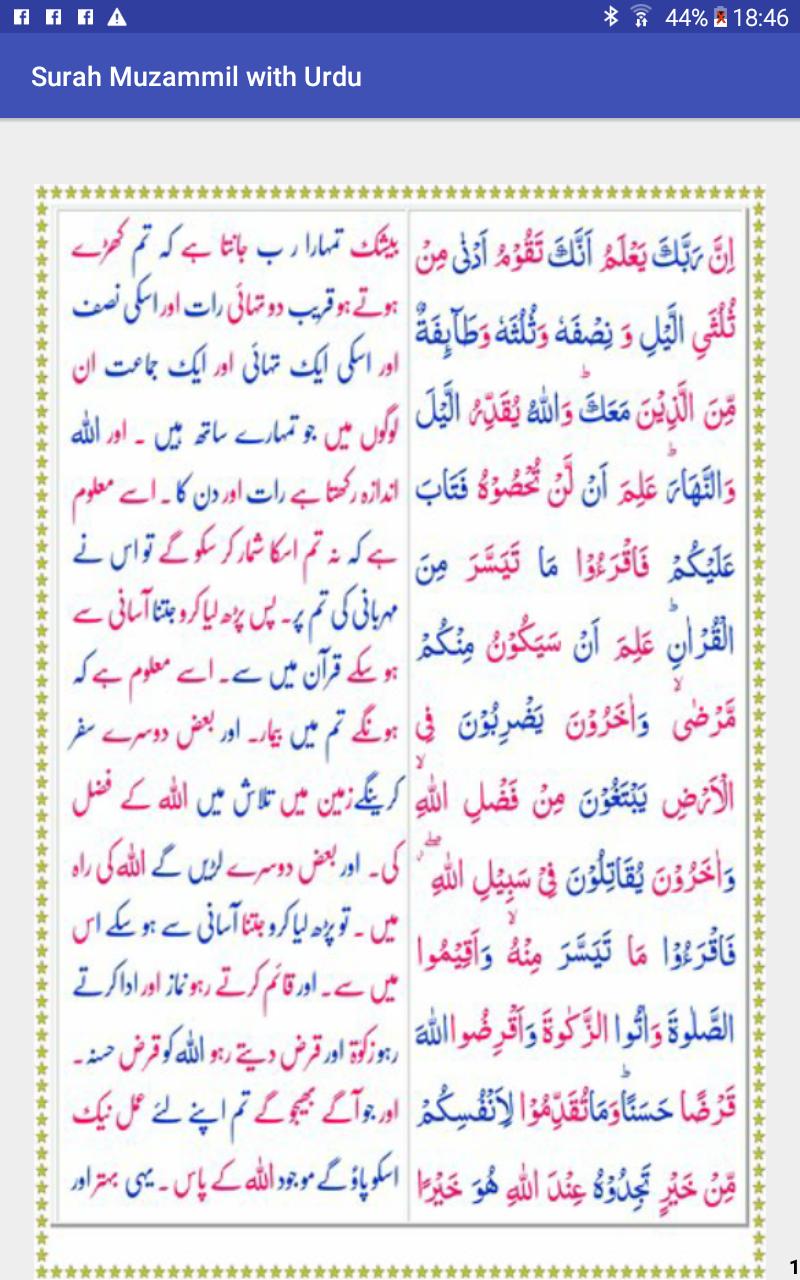 44% 18:46
Surah Muzammil with Urdu
اِنَّ رَبَّكَ يَعْلَمُ اَنَّكَ تَقُوْمُ اَدْنٰى مِنْ
ثُلُثَىِ الَّيْلِ وَ نِصْفَهٗ وَثُلُثَهٗ وَطَآئِفَةٌ
مِّنَ الَّذِيْنَ مَعَكَ ؕ وَاللّٰهُ يُقَدِّرُ الَّيْلَ
وَالنَّهَارَ ؕ عَلِمَ اَنْ لَّنْ تُحْصُوْهُ فَتَابَ
عَلَيْكُمْ فَاقْرَءُوْا مَا تَيَسَّرَ مِنَ
الْقُرْاٰنِ ؕ عَلِمَ اَنْ سَيَكُوْنُ مِنْكُمْ
مَّرْضٰى ۙ وَاٰخَرُوْنَ يَضْرِبُوْنَ فِى
الْاَرْضِ يَبْتَغُوْنَ مِنْ فَضْلِ اللّٰهِ ۙ
وَاٰخَرُوْنَ يُقَاتِلُوْنَ فِىْ سَبِيْلِ اللّٰهِ ۖ
فَاقْرَءُوْا مَا تَيَسَّرَ مِنْهُ ۙ وَاَقِيْمُوا
الصَّلٰوةَ وَاٰتُوا الزَّكٰوةَ وَاَقْرِضُوا اللّٰهَ
قَرْضًا حَسَنًا ؕ وَمَا تُقَدِّمُوْا لِاَنْفُسِكُمْ
مِّنْ خَيْرٍ تَجِدُوْهُ عِنْدَ اللّٰهِ هُوَ خَيْرًا
بیشک تمہارا رب جانتا ہے کہ تم کھڑے
ہوتے ہو قریب دو تہائی رات اور اسکی نصف
اور اسکی ایک تہائی اور ایک جماعت ان
لوگوں میں جو تمہارے ساتھ ہیں ۔ اور اللہ
اندازہ رکھتا ہے رات اور دن کا ۔ اسے معلوم
ہے کہ نہ تم اسکا شمار کر سکو گے تو اس نے
مہربانی کی تم پر۔ پس پڑھ لیا کرو جتنا آسانی سے
ہو سکے قرآن میں سے ۔ اسے معلوم ہے کہ
ہونگے تم میں بیمار۔ اور بعض دوسرے سفر
کرینگے زمین میں تلاش میں اللہ کے فضل
کی۔ اور بعض دوسرے لڑیں گے اللہ کی راہ
میں ۔ تو پڑھ لیا کرو جتنا آسانی سے ہو سکے اس
میں سے ۔ اور قائم کرتے رہو نماز اور ادا کرتے
رہو زکوٰۃ اور قرض دیتے رہو اللہ کو قرض حسنہ ۔
اور جو آگے بھیجو گے تم اپنے لئے عمل نیک
اسکو پاؤ گے موجود اللہ کے پاس ۔ یہی بہتر اور
1